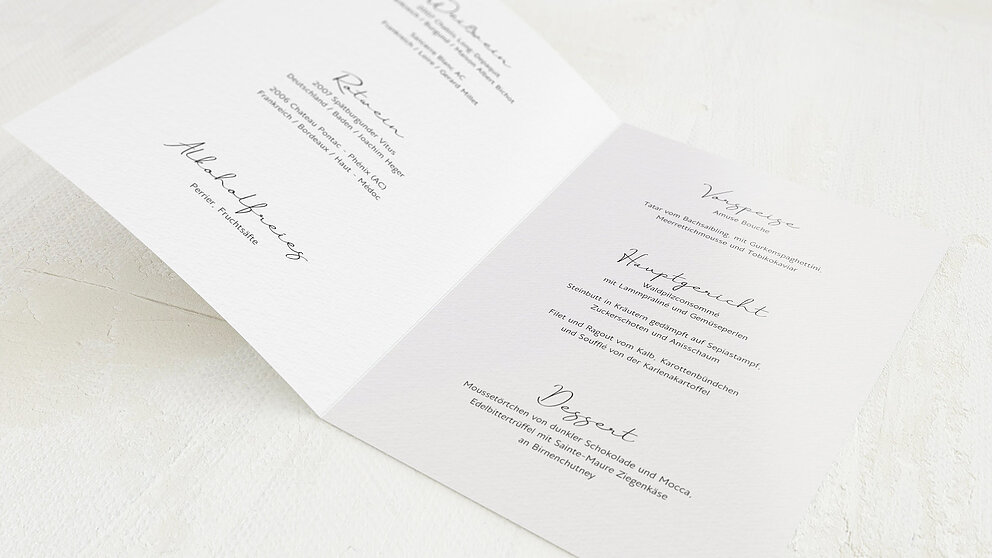 Weißwein
2007 Chablis Long Depaquit
Frankreich / Burgund / Maison Albert Bichot
Sancerre Blanc, AC
Frankreich / Loire / Gerard Millet
Rotwein
2007 Spätburgunder Vitus
Deutschland / Baden / Joachim Heger
2006 Chateau Pontac - Phénix (AC)
Frankreich / Bordeaux / Haut - Médoc
Alkoholfreies
Perrier, Fruchtsäfte
Vorspeise
Amuse Bouche
Tatar vom Bachsaibling, mit Gurkenspaghettini,
Meerrettichmousse und Tobikokaviar
Hauptgericht
Waldpilzconsommé
mit Lammpraliné und Gemüseperlen
Steinbutt in Kräutern gedämpft auf Sepiastampf,
Zuckerschoten und Anisschaum
Filet und Ragout vom Kalb, Karottenbündchen
und Soufflé von der Karlenakartoffel
Dessert
Moussetörtchen von dunkler Schokolade und Mocca,
Edelbittertrüffel mit Sainte-Maure Ziegenkäse
an Birnenchutney